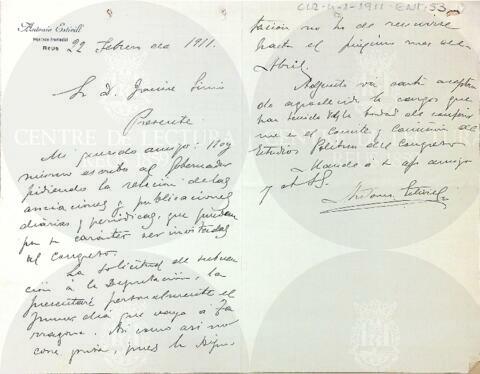 Antonio Estivill
Diputado Provincial
REUS
22 Febrero de 1911.
Sr D. Jaime Simó
Presente
Mi querido amigo: Hoy
mismo escribo al Gobernador
pidiendo la relación de las
asociaciones y publicaciones
diarias y periodicas, que puedan
por su carácter ser invitadas
al Congreso.
La solicitud de subven
ción á la Diputación, la
presentaré personalmente el
primer dia que vaya á Ta
rragona. Asi como asi no
corre prisa, pues la Dipu-
CLR-4-2-1911-ENT-53
tación no ha de reunirse
hasta el proximo mes de
Abril.
Adjunto va carta acep
do agradecido los cargos que
han tenido Vds la bondad de
me en el Comité y Comisión de
Estudios Politicos del Congreso
Mande á su affo amigo
y
Antonio Estivill
CENTRE DE LECTURA